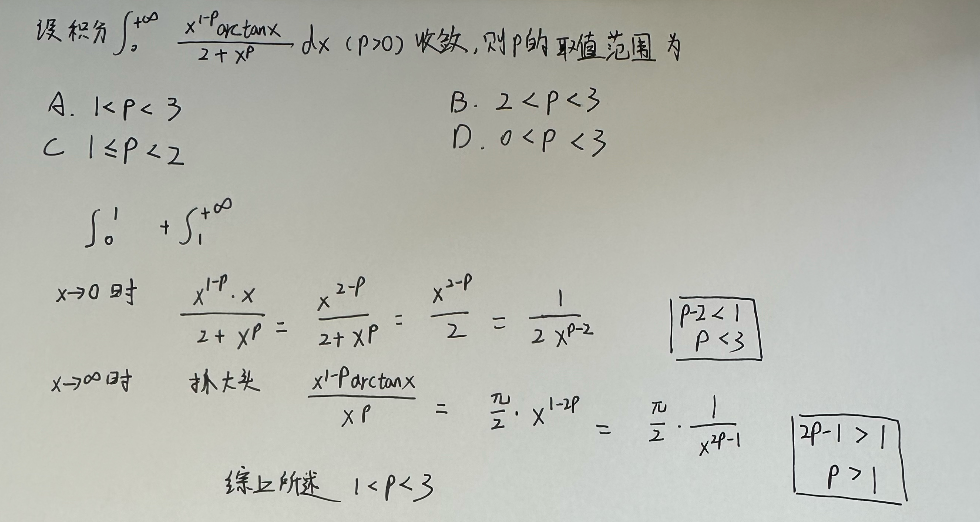 设积分 ∫₀^{+∞} \frac{x^{1-p} arctanx}{2+x^p} dx (p>0) 收敛,则p的取值范围为
A. 1<p<3 B. 2<p<3
C 1≤p<2 D. 0<p<3
∫₀^1 + ∫₁^{+∞}
x→0时 \frac{x^{1-p}·x}{2+x^p} = \frac{x^{2-p}}{2+x^p} = \frac{x^{2-p}}{2} = \frac{1}{2x^{p-2}} p-2<1
p<3
x→∞时 抓大头 \frac{x^{1-p}arctanx}{x^p} = \frac{π}{2}·x^{1-2p} = \frac{π}{2}·\frac{1}{x^{2p-1}} 2p-1>1
p>1
综上所述 1<p<3